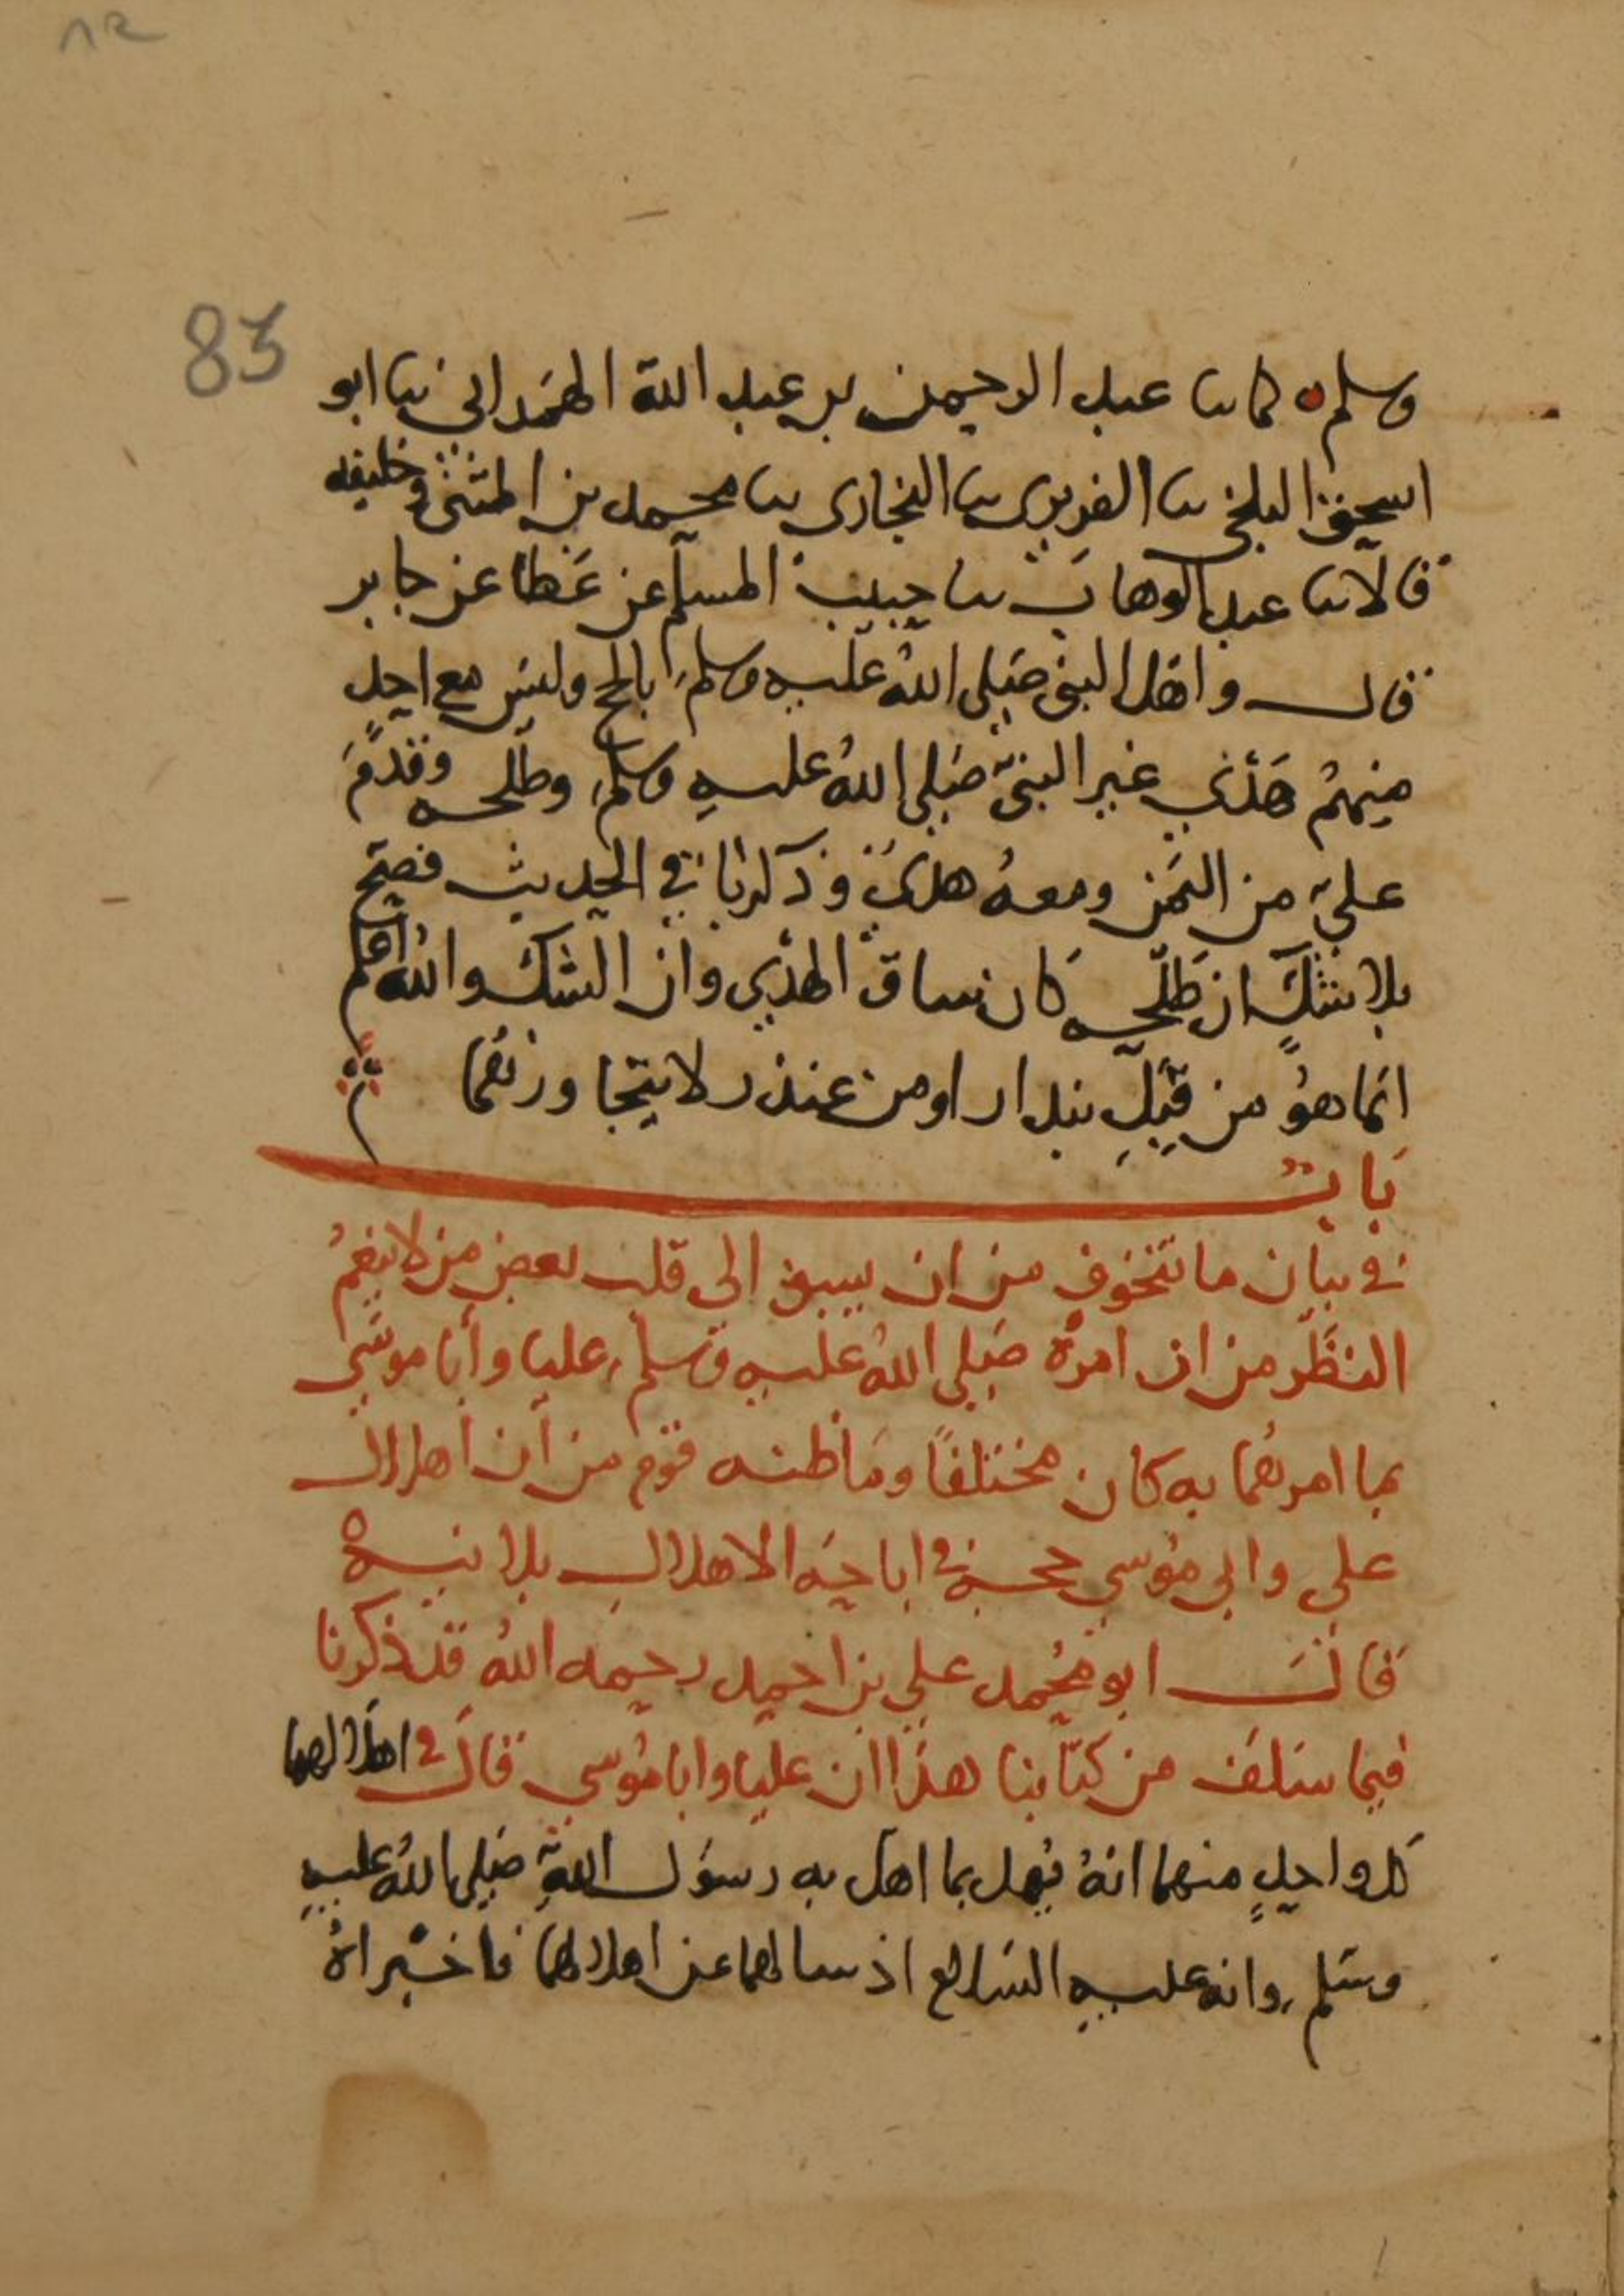 ٨٢
83
وسلم ٥ كما نا عبد الرحمن بن عبد الله الهمداني نا ابو
اسحق البلخي نا الفربري نا البخاري نا محمد بن المثنى وخليفه
قالا نا عبد الوهاب نا حبيب المسلم عن عطا عن جابر
قال واهل النبي صلى الله عليه وسلم بالحج وليس مع احدٍ
منهم هَدْي غير النبي صلى الله عليه وسلم وطلحه وقدمَ
علي من اليمن ومعهُ هدي وذكرنا في الحديث فصح
بلا شكٍ ان طلحه كان ساق الهدي وان الشك والله اعلم
انما هو من قِبَلِ بندار او من غندر لا يتجاوزهما
باب
في بيان ما نتخوف من ان يسبق الى قلب بعض من لا ينعم
النظر من ان امره صلى الله عليه وسلم عليا وأبا موسى
بما امرهما به كان مختلفًا وما ظنه قوم من ان اهلال
علي وابي موسى حجة في اباحة الاهلال بلا نيه
قال ابو محمد علي بن احمد رحمه الله قد ذكرنا
فيما سلف من كتابنا هذا ان عليا وابا موسى قال في اهلالهما
كل واحدٍ منهما انهُ يُهل بما اهل به رسول الله صلى الله عليه
وسلم وانه عليه السلام اذ سالهما عن اهلالهما فاخبراهُ